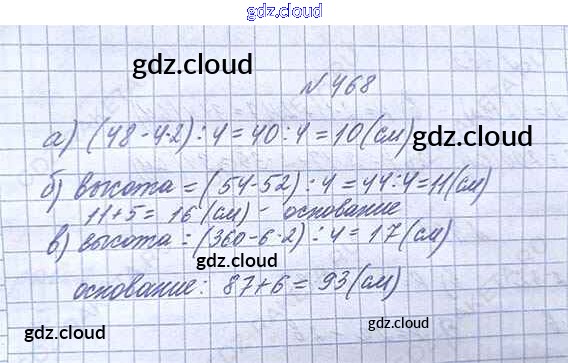 gdz.cloud
gdz.cloud
№ 468
а) (48-4·2):4=40:4=10(см)
gdz.cloud
б) высота=(54-52):4=44:4=11(см)
11+5=16(см)- основание
в) высота=(360-6·2):4=17(см)
gdz.cloud
основание: 87+6=93(см)
gdz.cloud
gdz.cloud